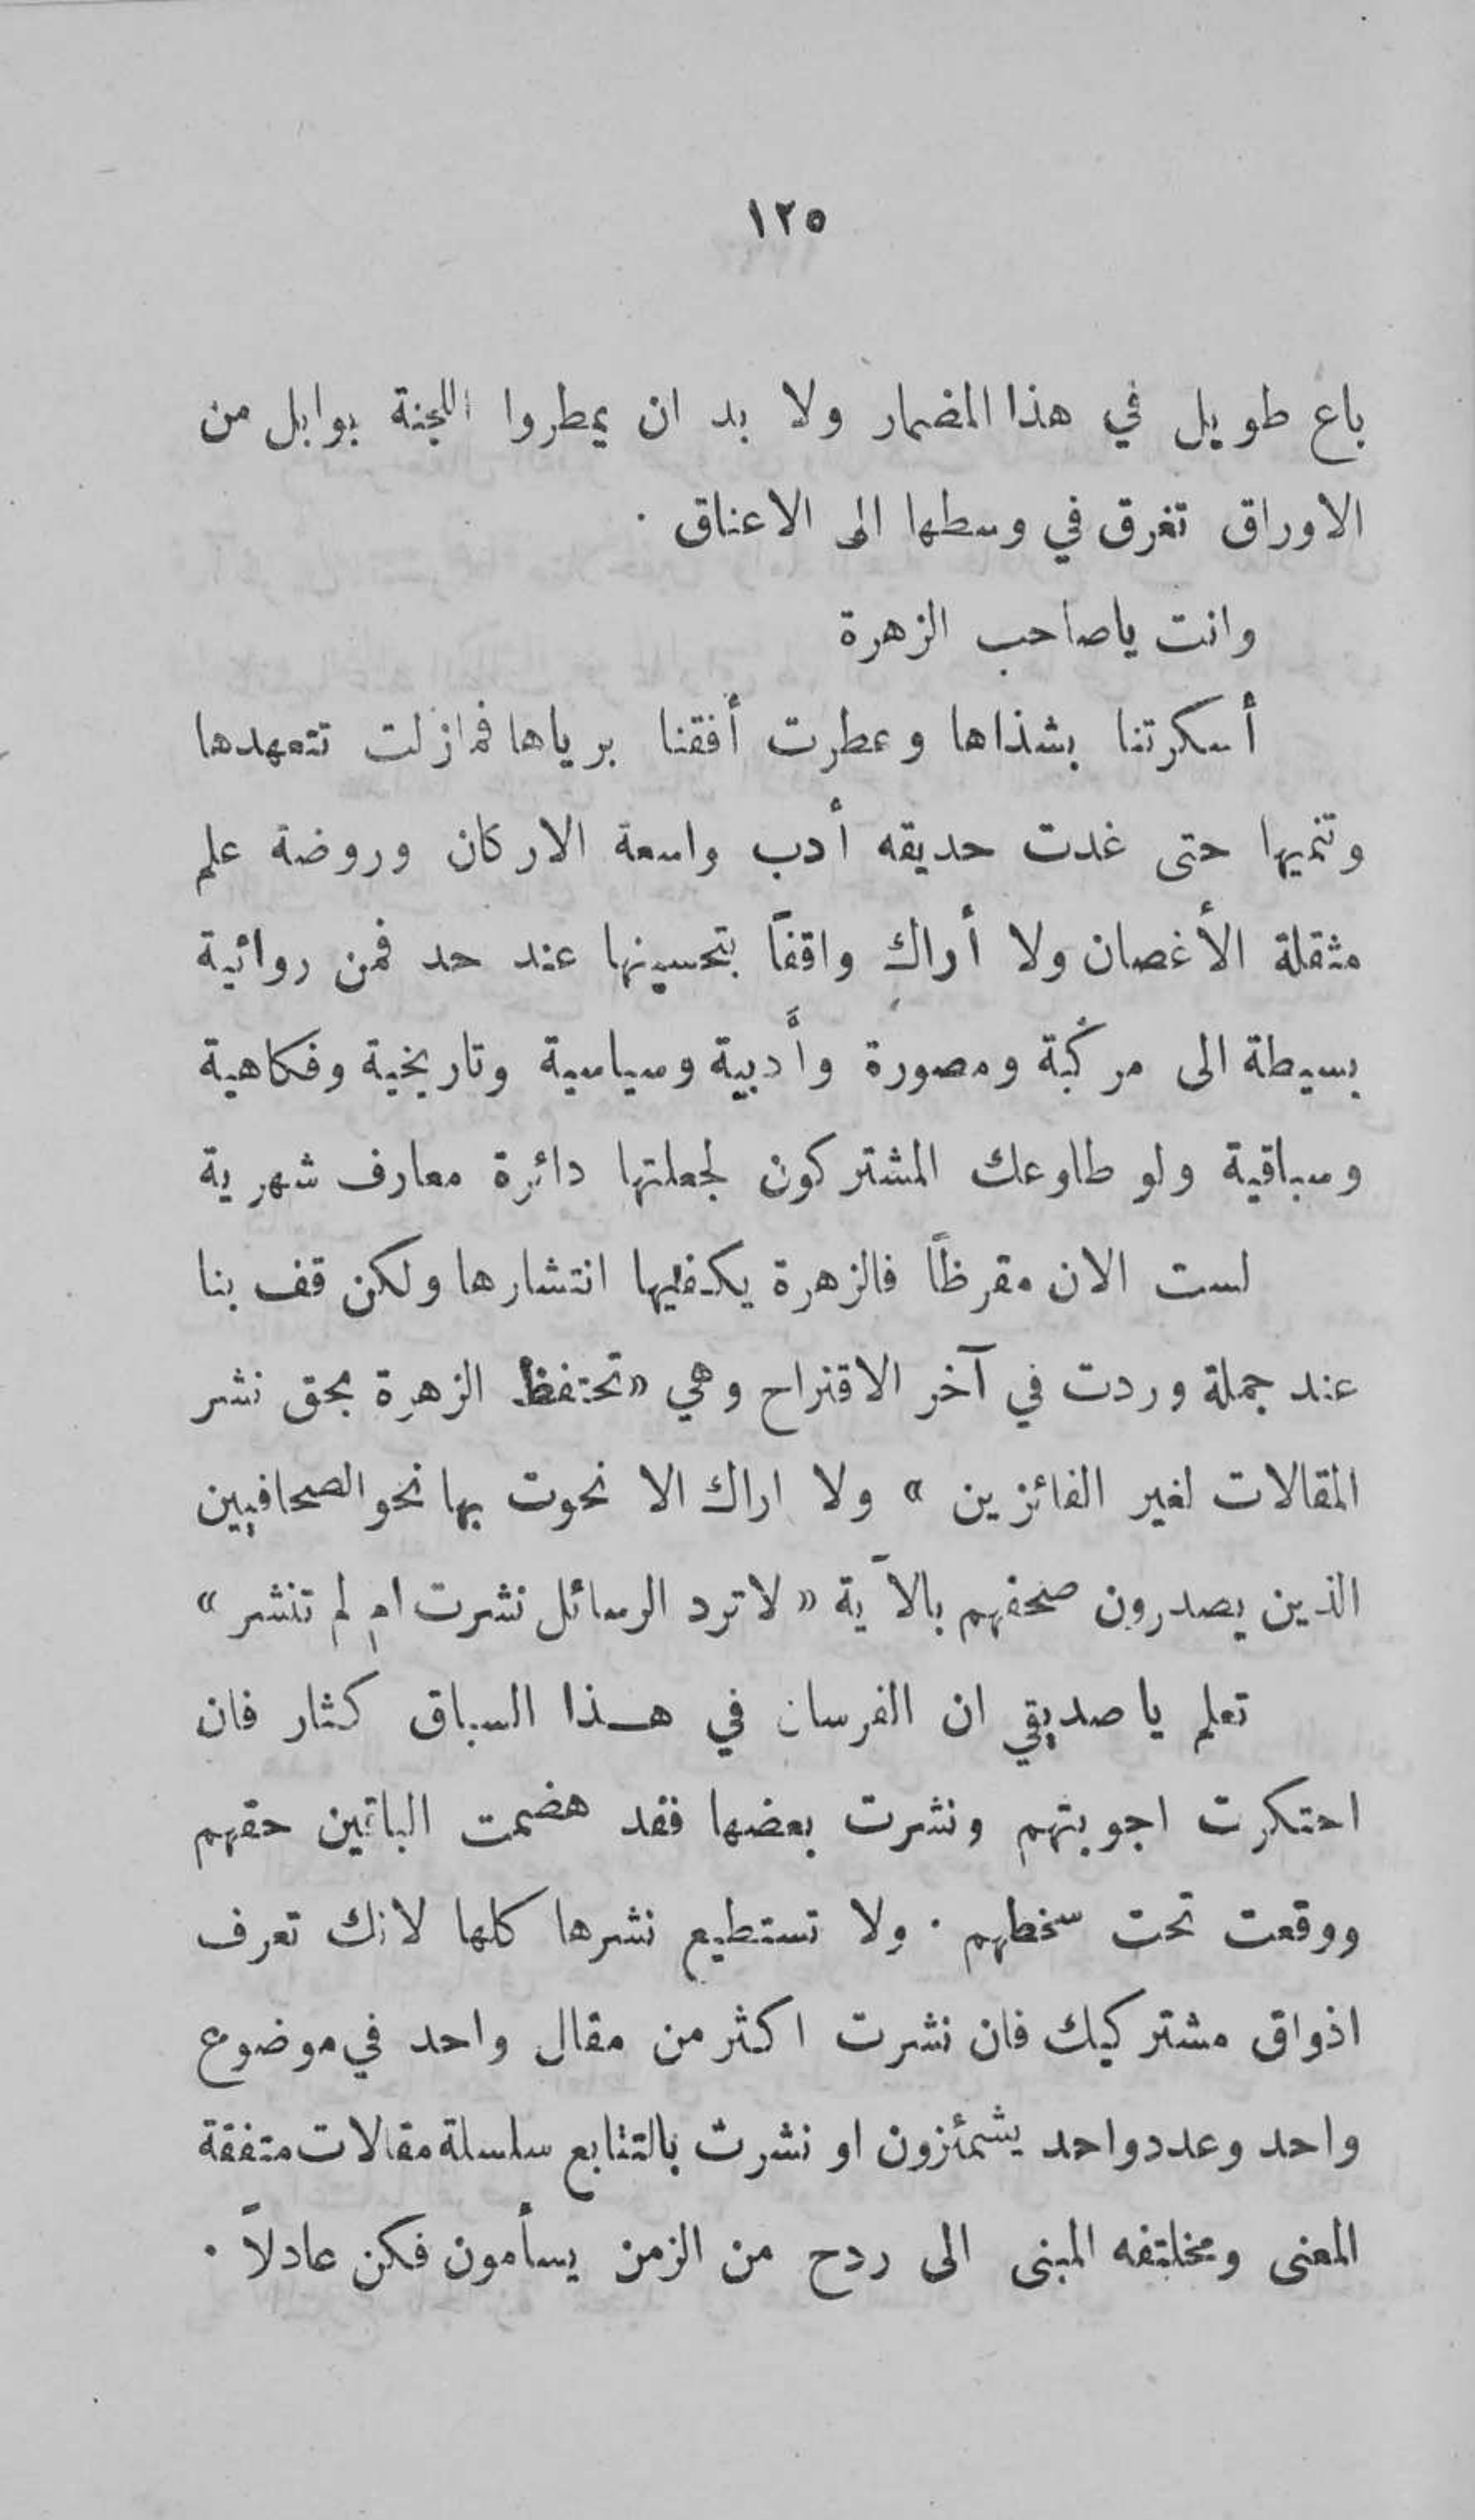 ١٢٥
باع طويل في هذا المضمار ولا بد ان يمطروا اللجنة بوابل من
الاوراق تغرق في وسطها الى الاعناق ·
وانت ياصاحب الزهرة
أسكرتنا بشذاها وعطرت أفقنا برياها فمازلت تتعهدها
وتنميها حتى غدت حديقه أدب واسعة الاركان وروضة علم
مثقلة الأغصان ولا أراك واقفاً بتحسينها عند حد فمن روائية
بسيطة الى مركبة ومصورة وأدبية وسياسية وتاريخية وفكاهية
وسباقية ولو طاوعك المشتركون لجعلتها دائرة معارف شهرية
لست الان مقرظاً فالزهرة يكفيها انتشارها ولكن قف بنا
عند جملة وردت في آخر الاقتراح وهي «تحتفظ الزهرة بحق نشر
المقالات لغير الفائزين » ولا اراك الا نحوت بها نحو الصحافيين
الذين يصدرون صحفهم بالآية « لا ترد الرسائل نشرت ام لم تنشر »
تعلم يا صديقي ان الفرسان في هذا السباق كثار فان
احتكرت اجوبتهم ونشرت بعضها فقد هضمت الباقين حقهم
ووقعت تحت سخطهم · ولا تستطيع نشرها كلها لانك تعرف
اذواق مشتركيك فان نشرت اكثر من مقال واحد في موضوع
واحد وعدد واحد يشمئزون او نشرت بالتتابع سلسلة مقالات متفقة
المعنى ومختلفه المبنى الى ردح من الزمن يسأمون فكن عادلاً ·